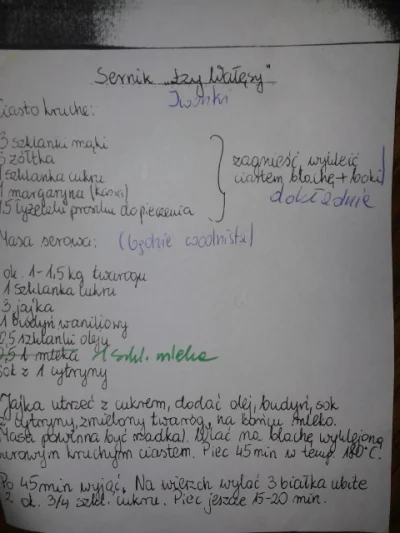 Sernik „Łzy Wałęsy"
Iwonki
Ciasto kruche:
3 szklanki mąki
3 żółtka
1 szklanka cukru
1 margaryna (Kasia)
1,5 łyżeczki proszku do pieczenia
zagnieść, wykleić
ciastem blachę + boki
dokładnie
Masa serowa: (będzie wodnista)
ok. 1-1,5 kg twarogu
1 szklanka cukru
3 jajka
1 budyń waniliowy
0,5 szklanki oleju
0,5 l mleka 1 szkl. mleka
sok z 1 cytryny
Jajka utrzeć z cukrem, dodać olej, budyń, sok
z cytryny, zmielony twaróg, na końcu mleko.
Masa powinna być rzadka). Wlać na blachę wyklejoną
surowym kruchym ciastem. Piec 45 min w temp. 180°C.
Po 45 min wyjąć. Na wierzch wylać 3 białka ubite
z ok. 3/4 szkl. cukru. Piec jeszcze 15-20 min.